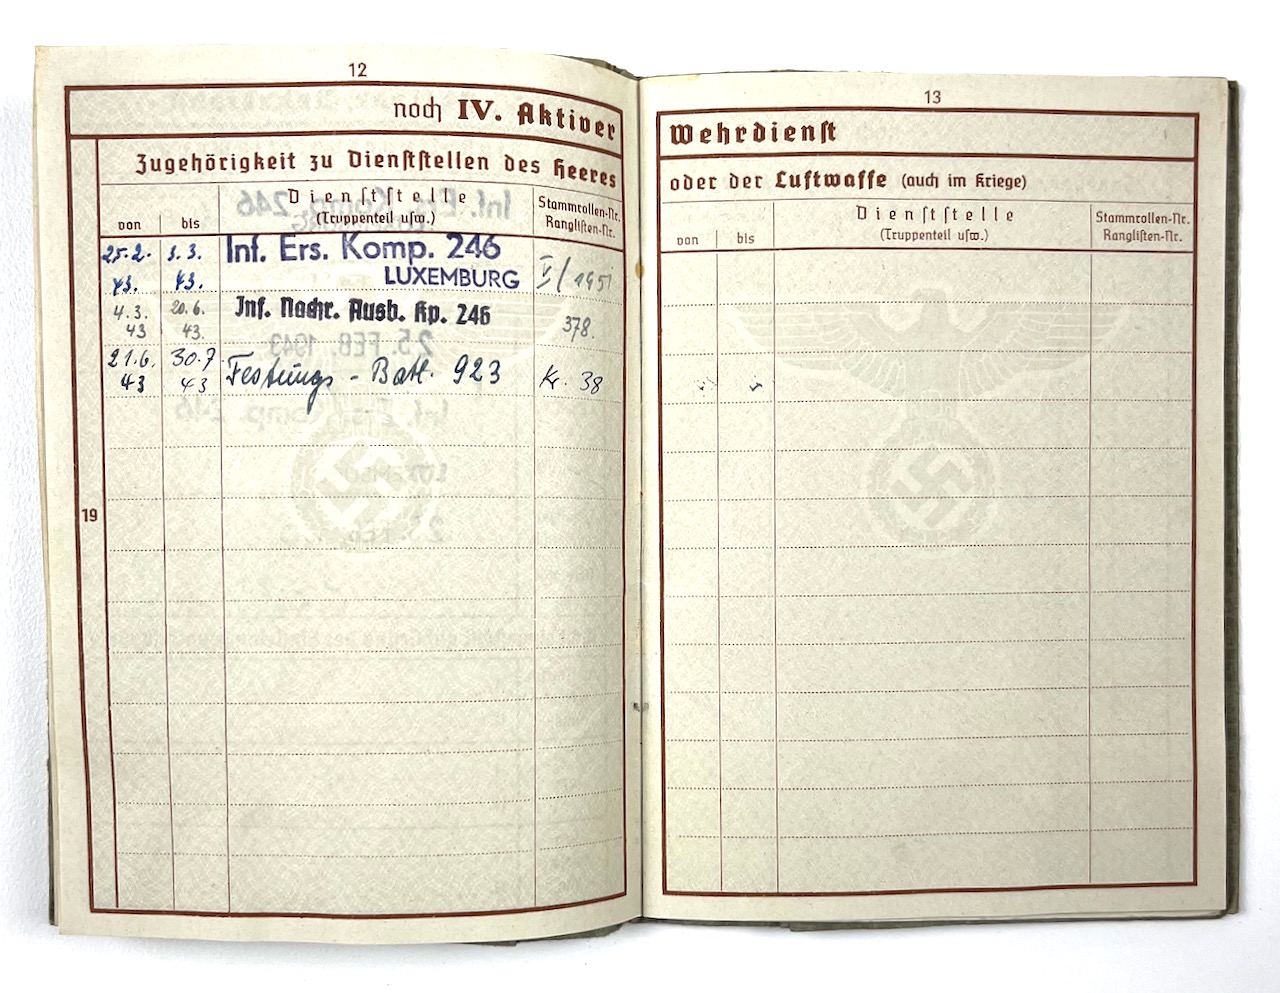 12
noch IV. Aktiver
Zugehörigkeit zu Dienststellen des Heeres
von
bis
Dienststelle
(Truppenteil usw.)
Stammrollen-Nr.
Ranglisten-Nr.
25.2. 3.3. Inf. Ers. Komp. 246
43. 43. LUXEMBURG
4.3. 20.6. Inf. Nachr. Ausb. Kp. 246
43 43. 378.
21.6. 30.7. Festungs - Batl. 923
43 43 Kr. 38
19
13
Wehrdienst
oder der Luftwaffe (auch im Kriege)
von
bis
Dienststelle
(Truppenteil usw.)
Stammrollen-Nr.
Ranglisten-Nr.